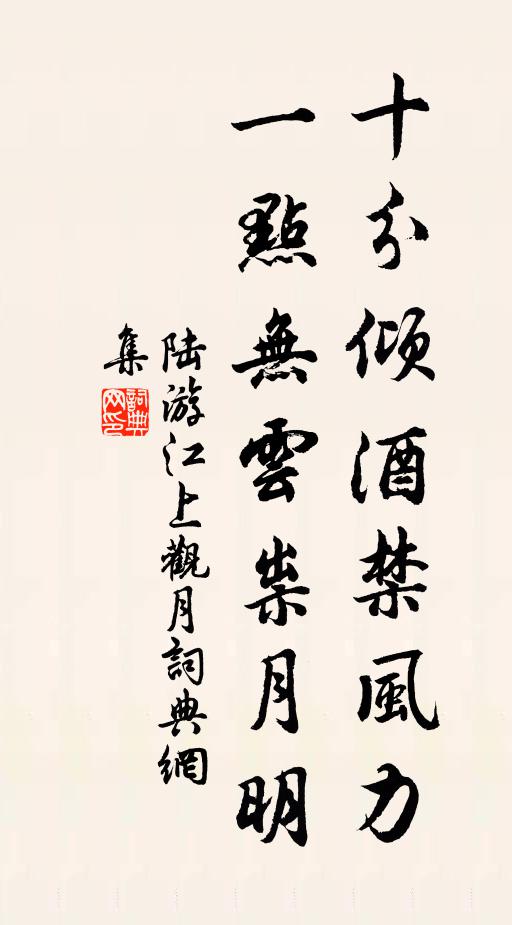 十分傾酒禁風力
一點無雲祟月明
陆游江上觀月詞典網
集
詞典
网印